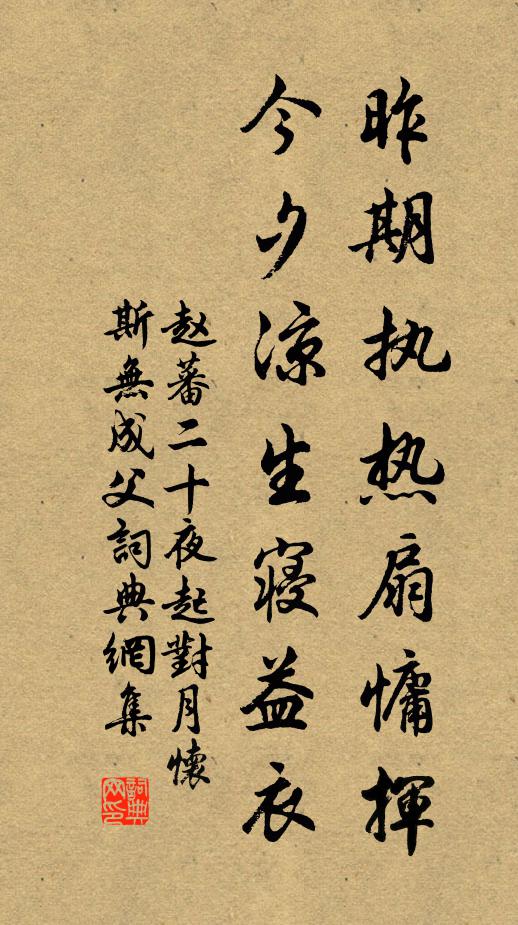 昨期执热扇慵揮
今夕凉生寝益衣
赵蕃二十夜起對月懷
斯無成父詞典網集
詞典網印